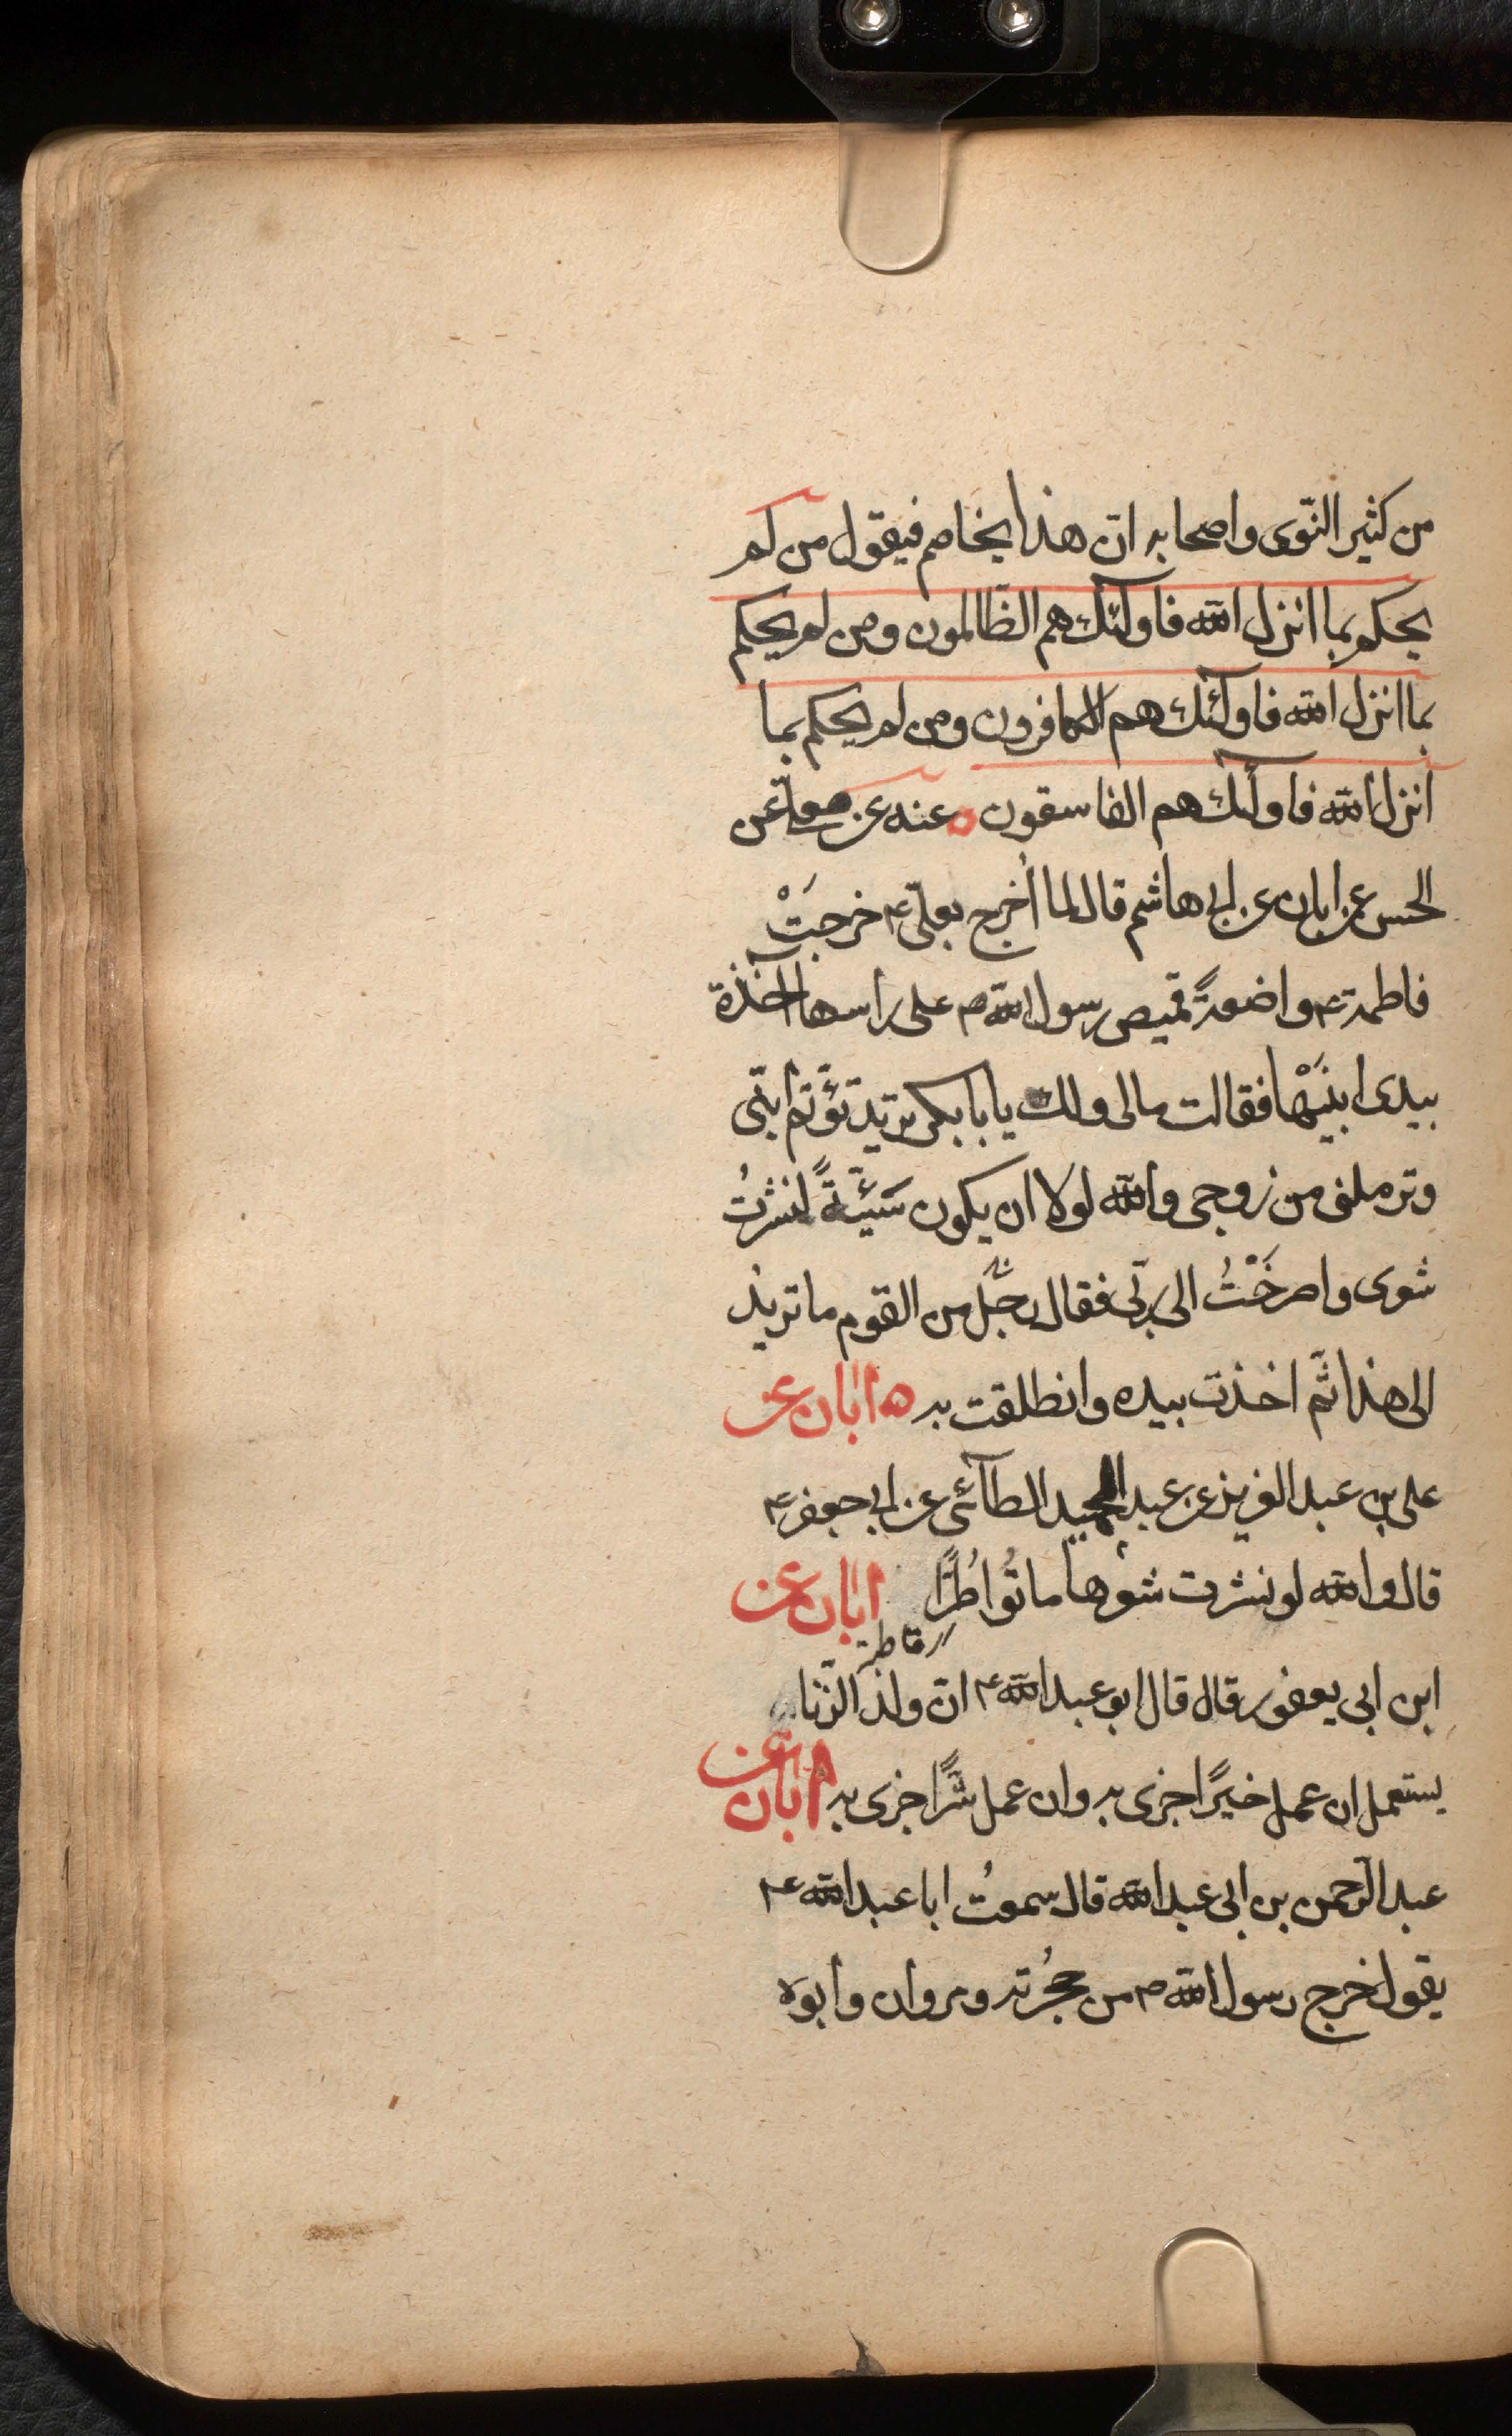 من كثير النّوى واصحابه انّ هذا يخاصم فيقول من لم
يحكم بما انزل الله فاولٓئك هم الظّالمون ومن لم يحكم
بما انزل الله فاولٓئك هم الكافرون ومن لم يحكم بما
انزل الله فاولٓئك هم الفاسقون ه عنه عن معلّى عن
الحسن عن ابان عن ابى هاشم قال لما اُخرج بعلىّ ع خرجَتْ
فاطمة ع واضعةً قميص رسول الله ص على راسها آخذة
بيدى ابنَيْها فقالت مالى ولك يا بابكر تريد تؤتم ابنىّ
وترملنى من زوجى والله لولا ان يكون سَيّئةً لنشرتُ
شعرى وصرخَتُ الى ربّى فقال رجل من القوم ما تريد
الى هذا ثمّ اخذت بيده وانطلقت به ه ابان عن
على بن عبد العزيز عن عبد الحميد الطآئى عن ابى جعفر ع
قال والله لو نشرت شعرها ماتُوا طُرًّا ابان عن
فاطمة
ابن ابى يعفور قال قال ابو عبد الله ع انّ ولد الزّنا
يستعمل ان عمل خيرًا جزى به وان عمل شرًّا جزى به ابان عن
عبد الرّحمن بن ابى عبد الله قال سمعتُ ابا عبد الله ع
يقول خرج رسول الله ص من حجُرته ومروان وابوه